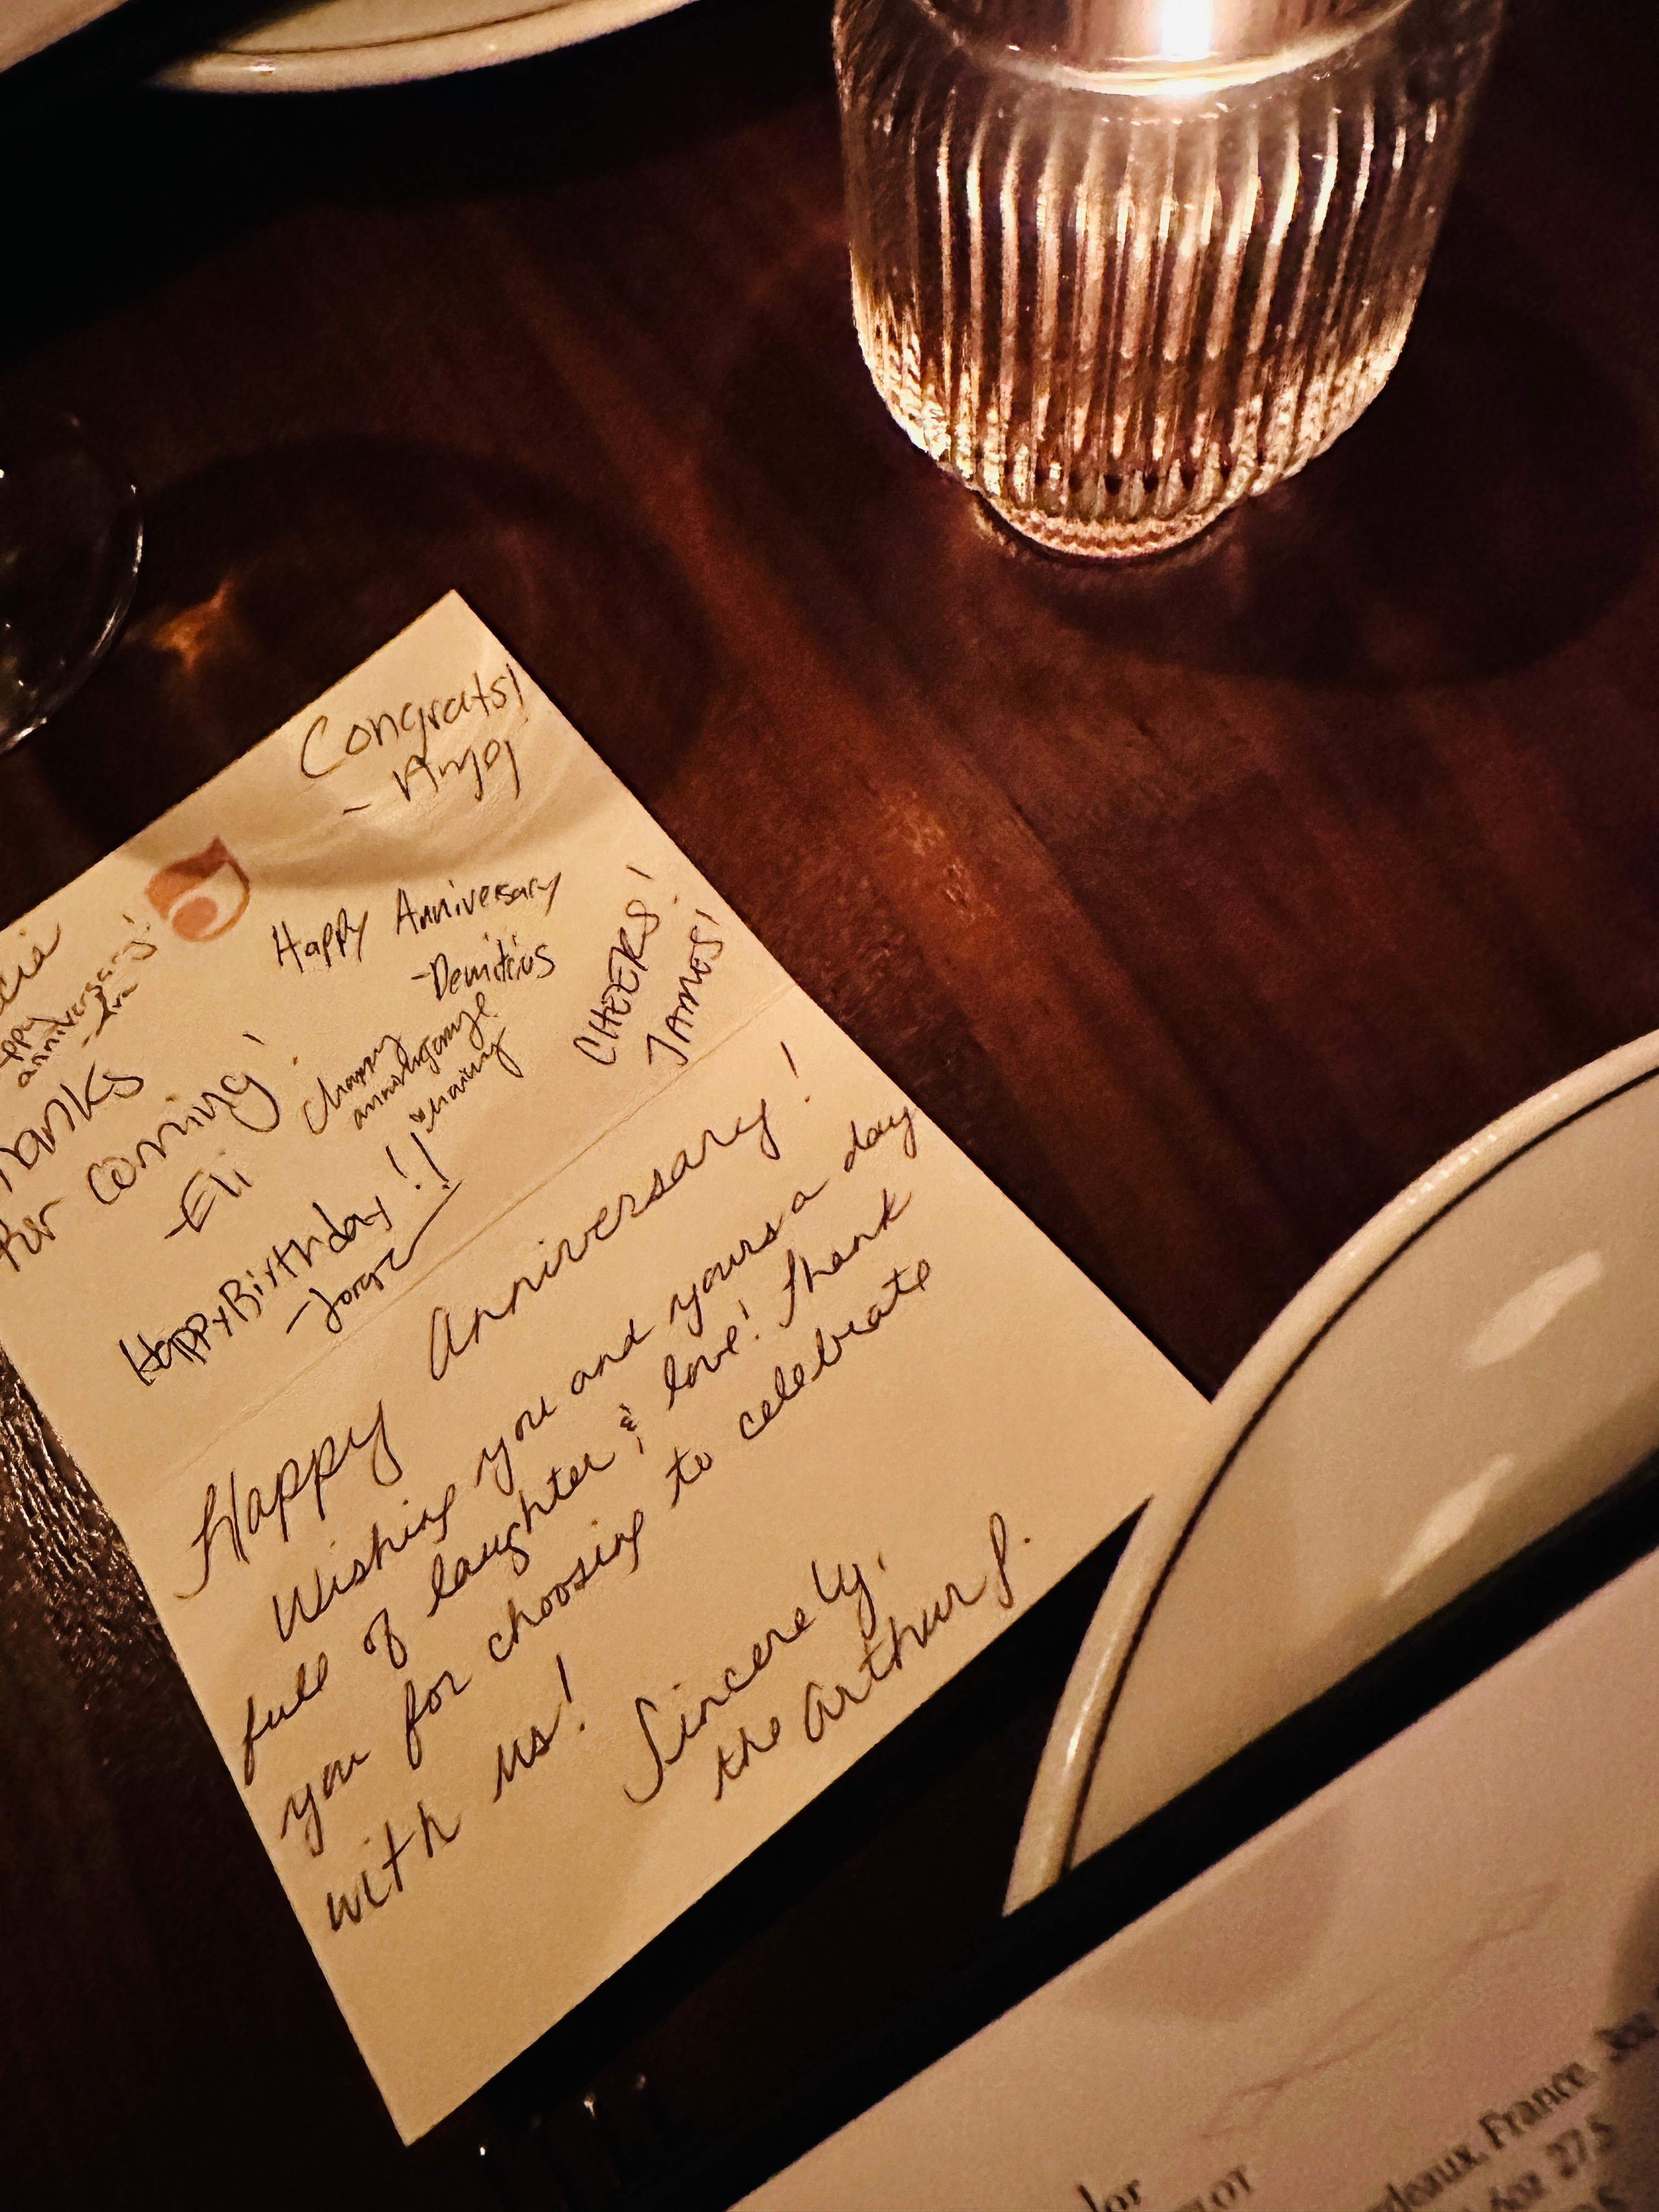 Congrats!
Happy Anniversary
-Demitrius
CHEERS!
JAMES!
anniversary!
for coming!
-Eli
Happy
Happy Birthday!!
-Jorge
Happy Anniversary!
Wishing you and yours a day
full of laughter & love! Thank
you for choosing to celebrate
with us!
Sincerely,
the Arthur J.
France
275